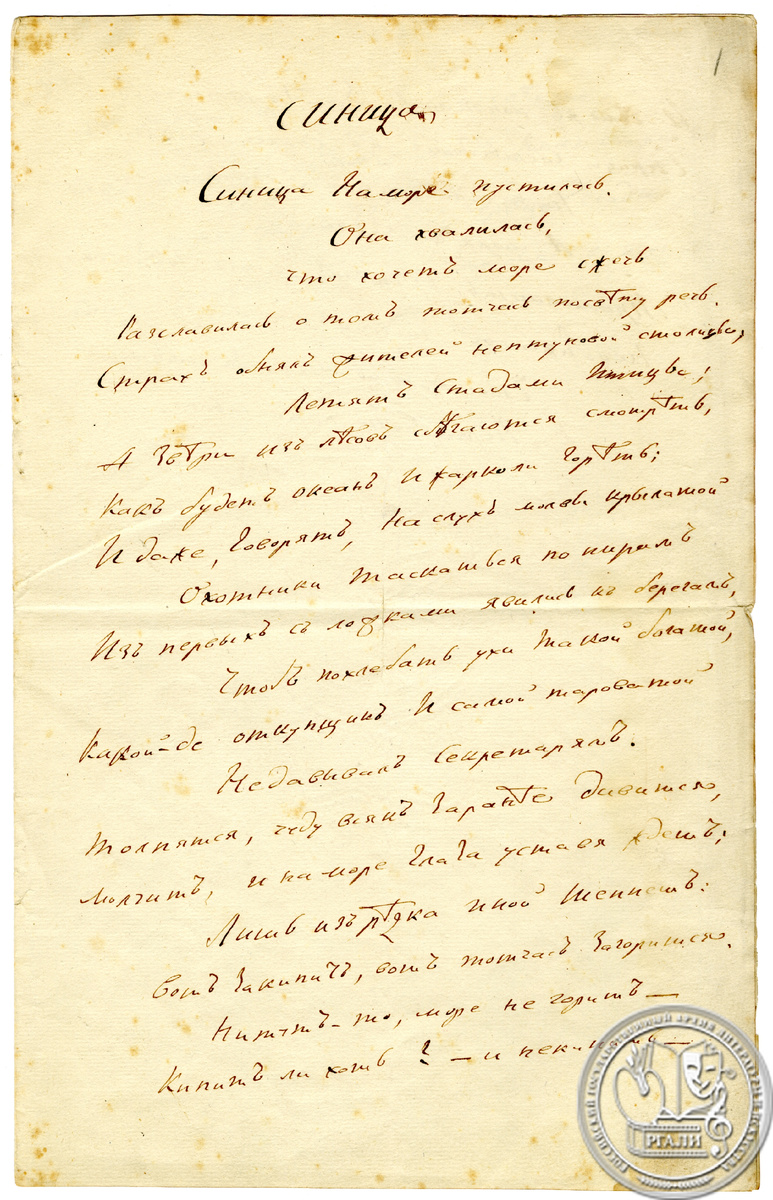 1
Синица
Синица На море пустилась.
Она хвалилась,
что хочетъ море сжечь
Разславилась о томъ тотчасъ посвѣту речь.
Страхъ обнялъ жителей нептуновой столицы;
Летятъ Стадами Птицы;
А Звѣри изъ лѣсовъ сбѣгаются смотрѣть,
Какъ будетъ океанъ И жарколи горѣть;
И даже, говорятъ, На слухъ молвы крылатой
Охотники таскаться по пирамъ
Изъ первыхъ съ ложками явились къ берегамъ,
Чтобъ похлебать ухи такой богатой,
Какой-де откупщикъ И самой тароватой
Недавывалъ Секретарямъ.
Толпятся, чуду всякъ Заранѣе дивится,
Молчитъ, и на море глаза уставя ждетъ;
Лишь изърѣдка иной шепнетъ:
Вотъ закипитъ, вотъ тотчасъ Загорится.
Нитутъ-то, море не горитъ —
Кипитъ ли хоть ? — и
РОССИЙСКИЙ ГОСУДАРСТВЕННЫЙ АРХИВ ЛИТЕРАТУРЫ И ИСКУССТВА
РГАЛИ